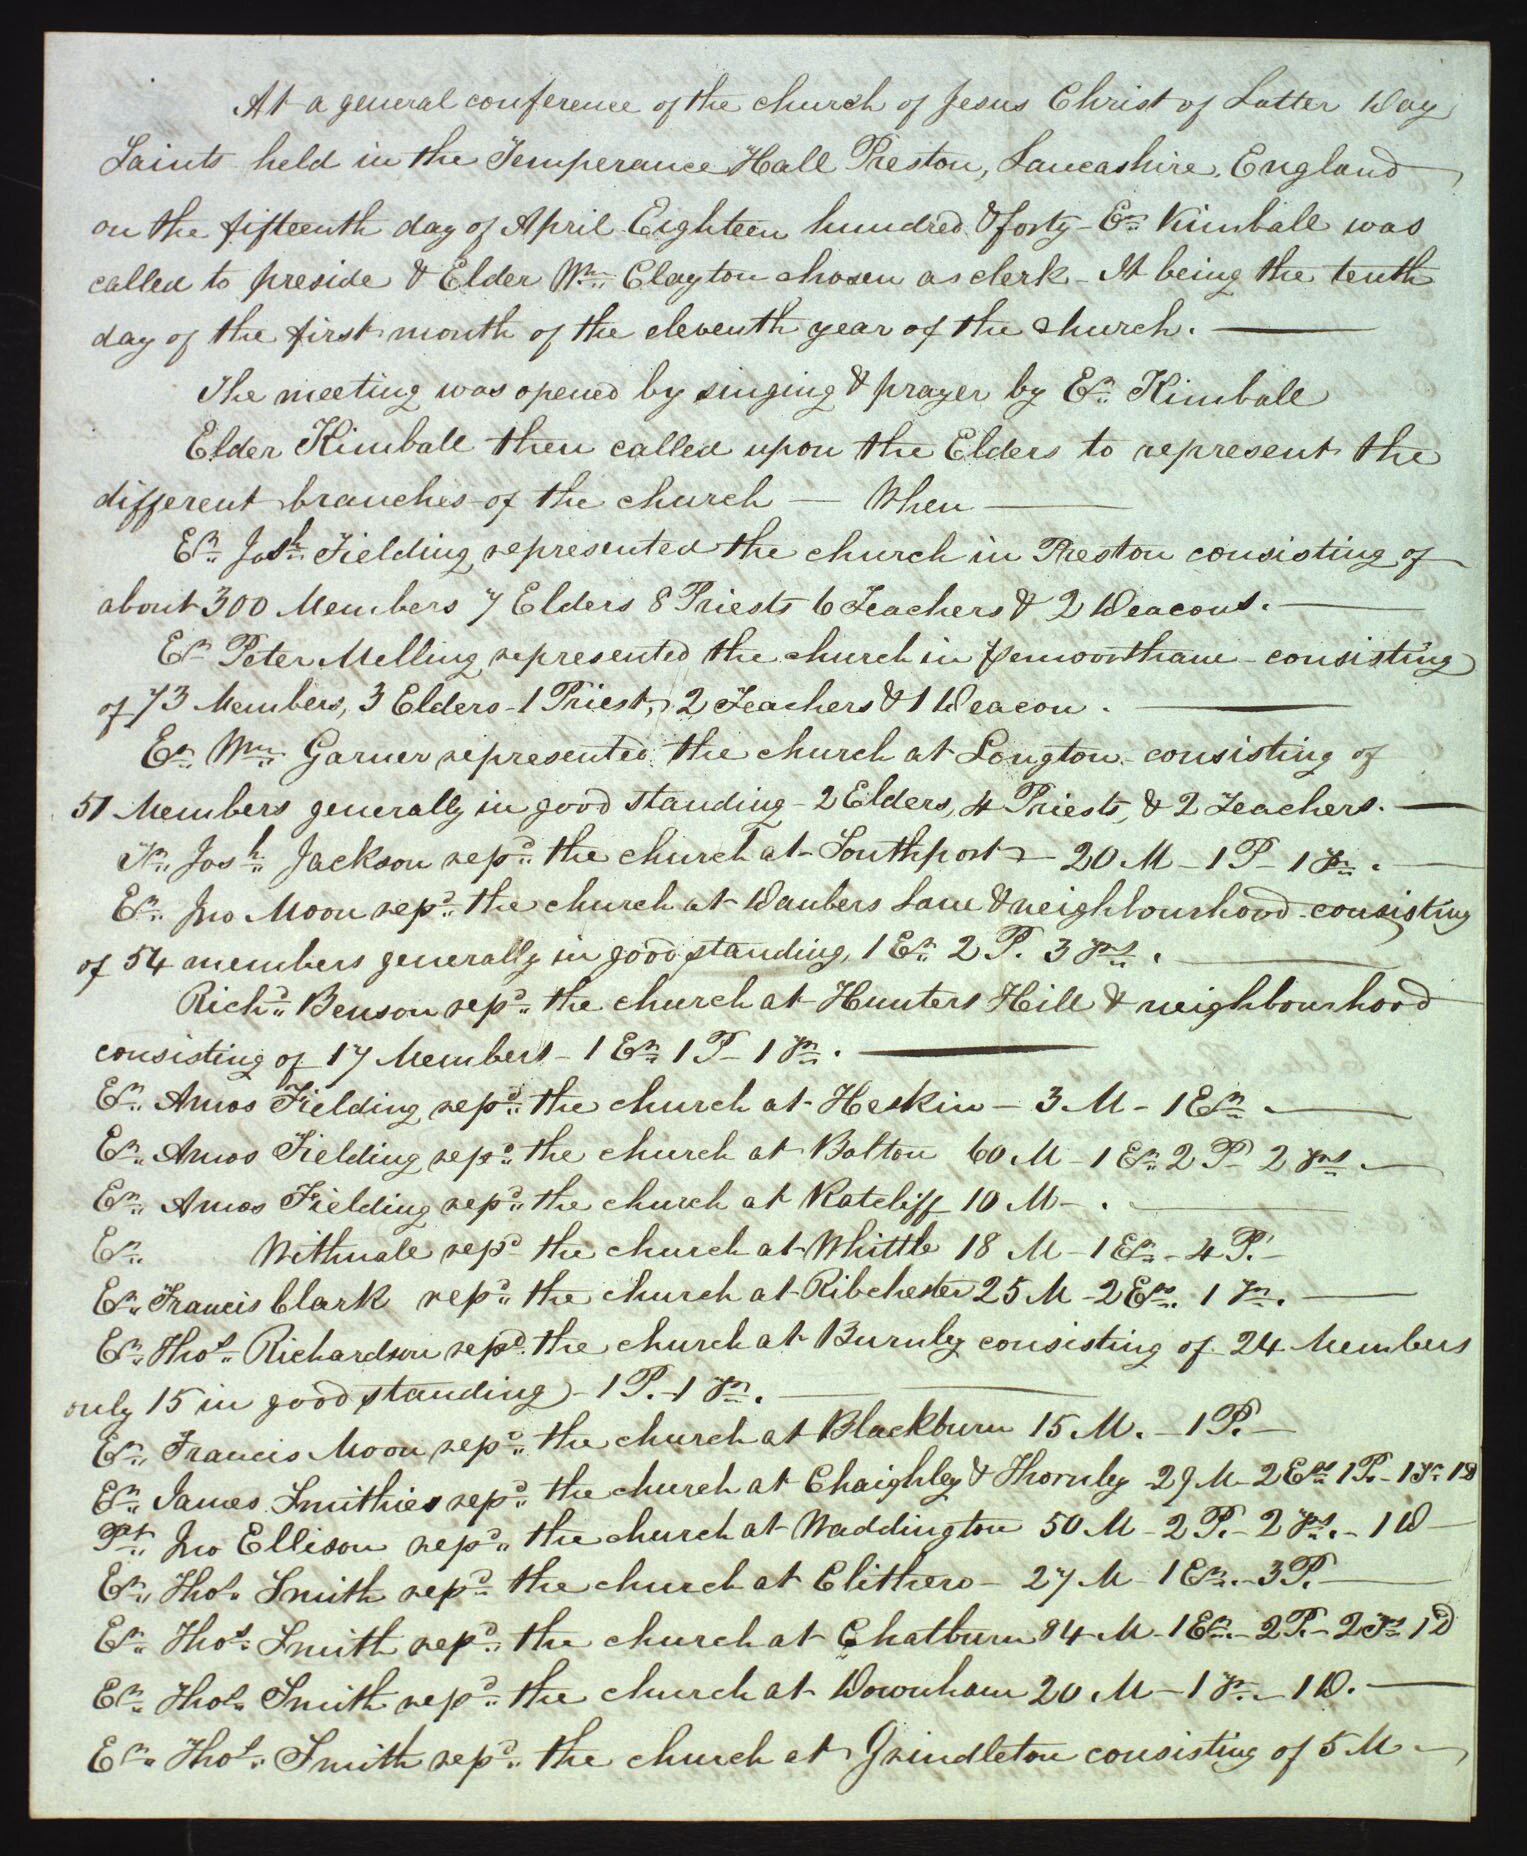 At a general conference of the church of Jesus Christ of Latter Day
Saints held in the Temperance Hall Preston, Lancashire, England
on the fifteenth day of April Eighteen hundred & forty - Er. Kimball was
called to preside & Elder Wm. Clayton chosen as clerk - It being the tenth
day of the first month of the eleventh year of the church. —
The meeting was opened by singing & prayer by Er. Kimball
Elder Kimball then called upon the Elders to represent the
different branches of the church — When —
Er. Josh. Fielding represented the church in Preston consisting of
about 300 Members 7 Elders 8 Priests 6 Teachers & 2 Deacons. —
Er. Peter Melling represented the church in Penwortham - consisting
of 73 Members, 3 Elders - 1 Priest, 2 Teachers & 1 Deacon. —
Er. Wm. Garner represented the church at Longton - consisting of
51 Members generally in good standing - 2 Elders, 4 Priests, & 2 Teachers. —
Tr. Josh. Jackson repd. the church at Southport - 20 M - 1 P - 1 Tr. —
Er. Jno Moon repd. the church at Daubers Lane & neighbourhood - consisting
of 54 members generally in good standing, 1 Er. 2 P. 3 Trs. —
Richd. Benson repd. the church at Hunters Hill & neighbourhood
consisting of 17 Members - 1 Er. 1 P - 1 Tr. —
Er. Amos Fielding repd. the church at Heskin - 3 M - 1 Er. —
Er. Amos Fielding repd. the church at Bolton 60 M - 1 Er. 2 P - 2 Trs. —
Er. Amos Fielding repd. the church at Ratcliff 10 M - . —
Er. Withnale repd the church at Whittle 18 M - 1 Er. - 4 P. -
Er. Francis Clark repd. the church at Ribchester 25 M - 2 Ers. 1 Tr. —
Er. Thos. Richardson repd. the church at Burnley consisting of 24 Members
only 15 in good standing - 1 P. - 1 Tr. —
Er. Francis Moon repd. the church at Blackburn 15 M. - 1 P. -
Er. James Smithies repd. the church at Chaighley & Thornley 29 M - 2 Ers 1 P. - 1 Tr. 1 D
Pt. Jno Ellison repd. the church at Waddington 50 M - 2 P. - 2 Trs. - 1 D -
Er. Thos. Smith repd. the church at Clithero - 27 M - 1 Er. - 3 P. —
Er. Thos. Smith repd. the church at Chatburn 84 M - 1 Er. - 2 P. - 2 Trs 1 D
Er. Thos. Smith repd. the church at Downham 20 M - 1 Tr. - 1 D. —
Er. Thos. Smith repd. the church at Grindleton consisting of 5 M -